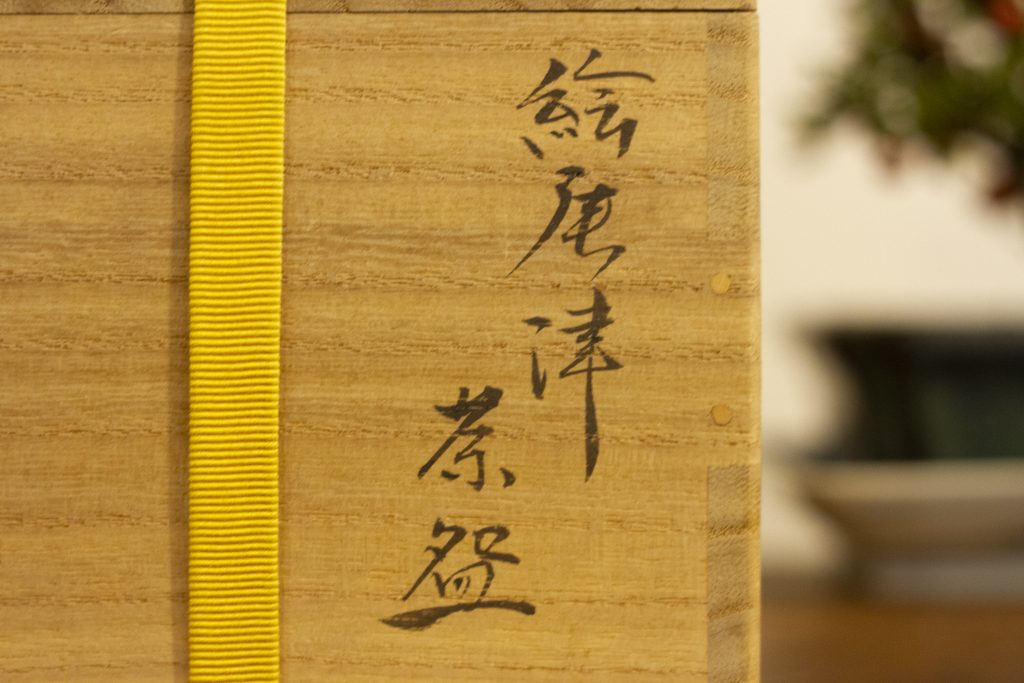 絵唐津
茶盌